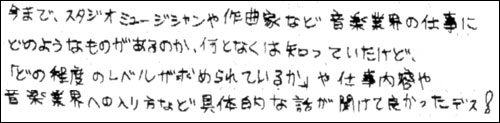 今まで、スタジオミュージシャンや作曲家など音楽業界の仕事に
どのようなものがあるのか、何となくは知っていたけど、
「どの程度のレベルが求められているか」や仕事内容や
音楽業界への入り方など具体的な話が聞けて良かったデス!